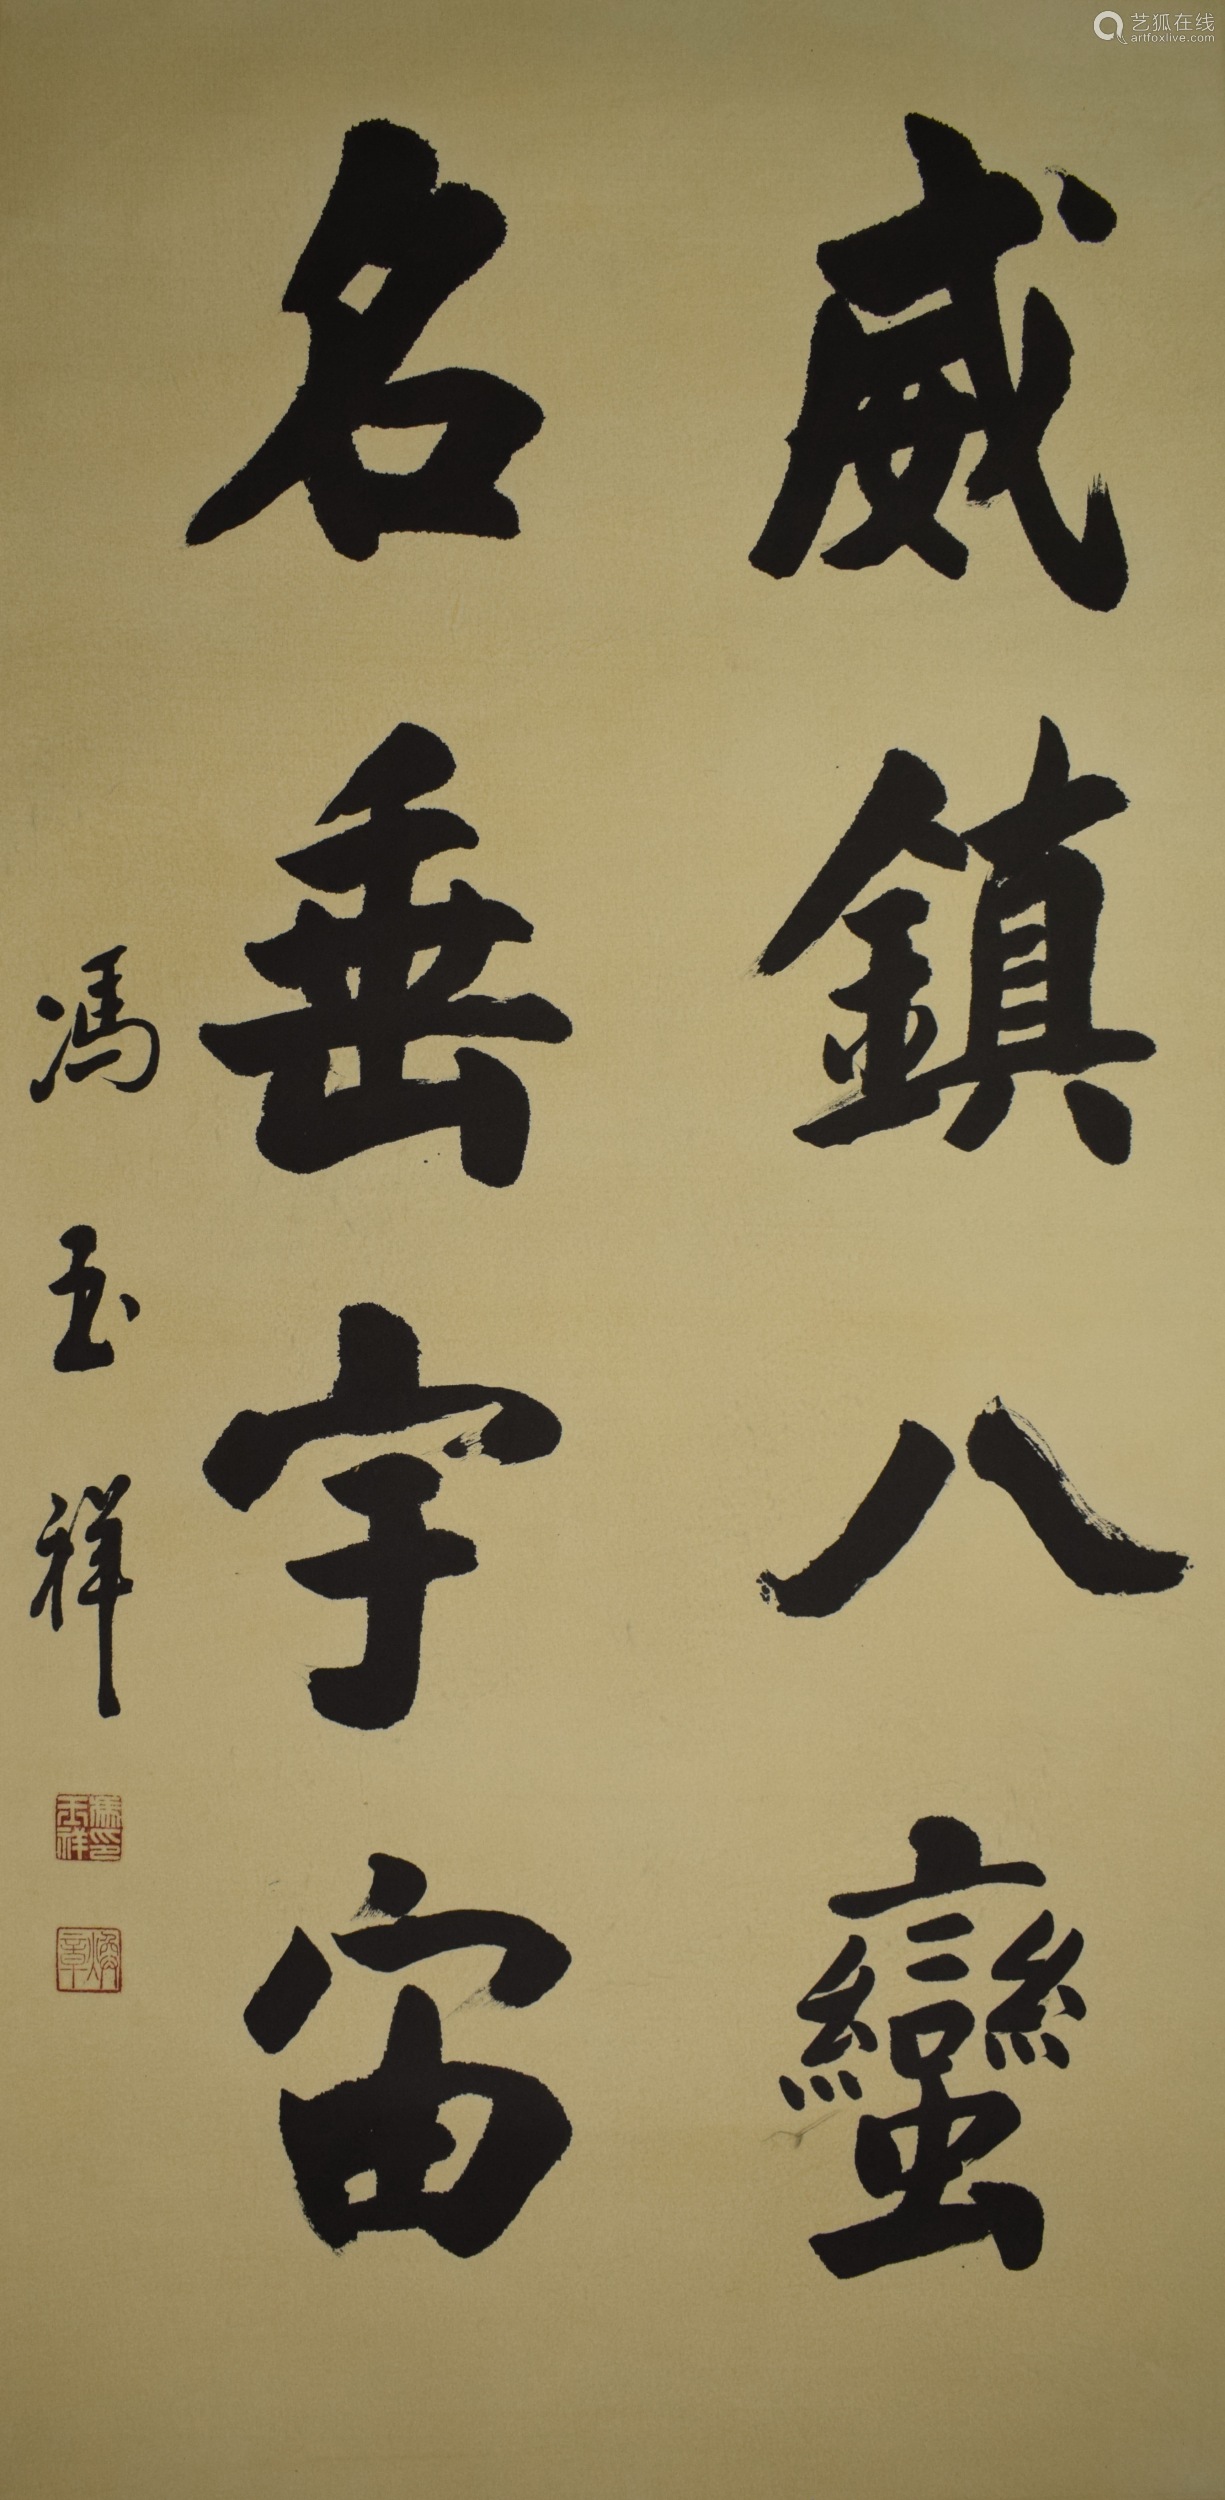 威鎮八蠻
名垂宇宙
馮玉祥
馮玉祥印
煥章
艺狐在线
artfoxlive.com